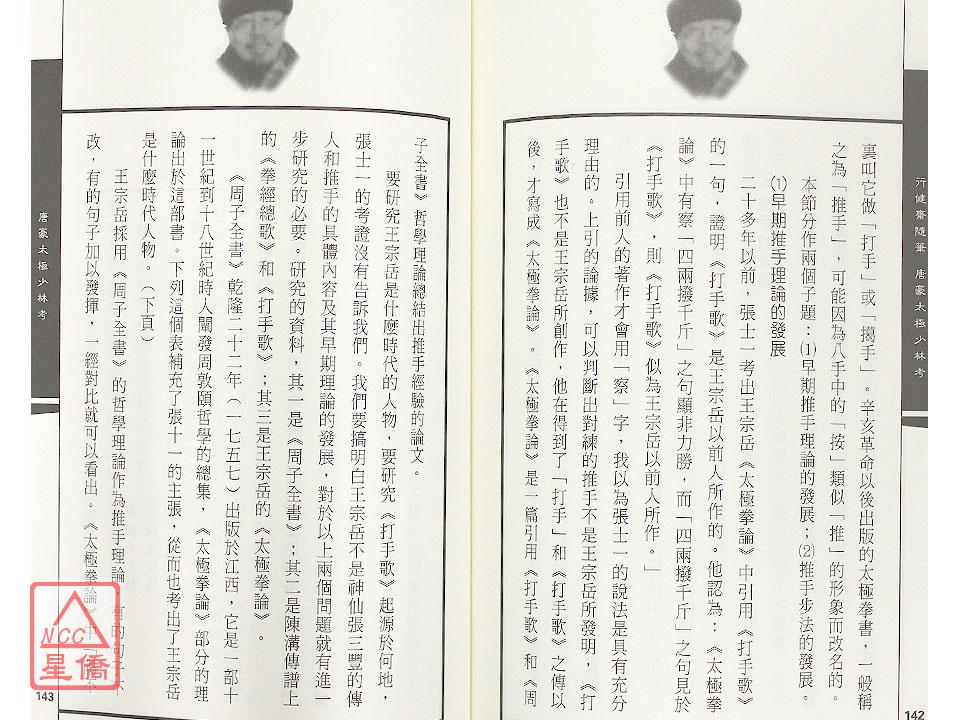 行健齋隨筆 唐豪太極少林考
裏叫它做「打手」或「搨手」。辛亥革命以後出版的太極拳書，一般稱
之為「推手」，可能因為八手中的「按」類似「推」的形象而改名的。
本節分作兩個子題：⑴早期推手理論的發展；⑵推手步法的發展。
⑴早期推手理論的發展
二十多年以前，張士一考出王宗岳《太極拳論》中引用《打手歌》
的一句，證明《打手歌》是王宗岳以前人所作的。他認為：《太極拳
論》中有察「四兩撥千斤」之句顯非力勝，而「四兩撥千斤」之句見於
《打手歌》，則《打手歌》似為王宗岳以前人所作。」
引用前人的著作才會用「察」字，我以為張士一的說法是具有充分
理由的。上引的論據，可以判斷出對練的推手不是王宗岳所發明，《打
手歌》也不是王宗岳所創作，他在得到了「打手」和《打手歌》之傳以
後，才寫成《太極拳論》。《太極拳論》是一篇引用《打手歌》和《周
142
子全書》哲學理論總結出推手經驗的論文。
要研究王宗岳是什麼時代的人物，要研究《打手歌》起源於何地，
張士一的考證沒有告訴我們。我們要搞明白王宗岳不是神仙張三豐的傳
人和推手的具體內容及其早期理論的發展，對於以上兩個問題就有進一
步研究的必要。研究的資料，其一是《周子全書》；其二是陳溝傳譜上
的《拳經總歌》和《打手歌》；其三是王宗岳的《太極拳論》。
《周子全書》乾隆二十二年（一七五七）出版於江西，它是一部十
一世紀到十八世紀時人闡發周敦頤哲學的總集，《太極拳論》部分的理
論出於這部書。下列這個表補充了張十一的主張，從而也考出了王宗岳
是什麼時代人物。（下頁）
王宗岳採用《周子全書》的哲學理論作為推手理論，有的句子不
改，有的句子加以發揮，一經對比就可以看出。《太極拳論》中「
唐豪太極少林考
143
NCC
星僑